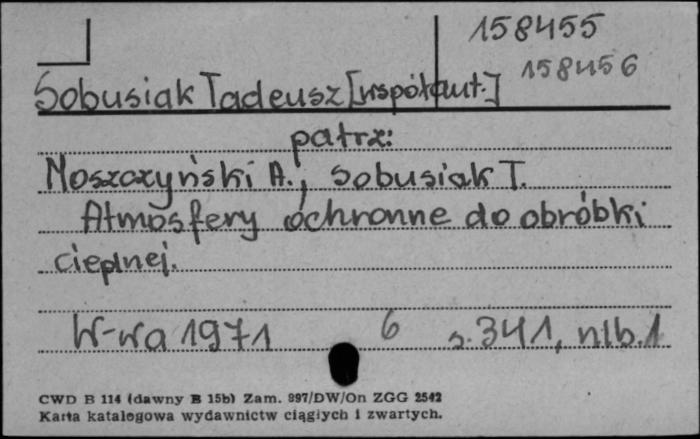 158455
158456
Sobusiak Tadeusz [współaut.]
patrz:
Moszczyński A., Sobusiak T.
Atmosfery ochronne do obróbki
cieplnej.
W-wa 1971 6 s. 341, nlb. 1
CWD B 114 (dawny B 15b) Zam. 997/DW/On ZGG 2542
Karta katalogowa wydawnictw ciągłych i zwartych.